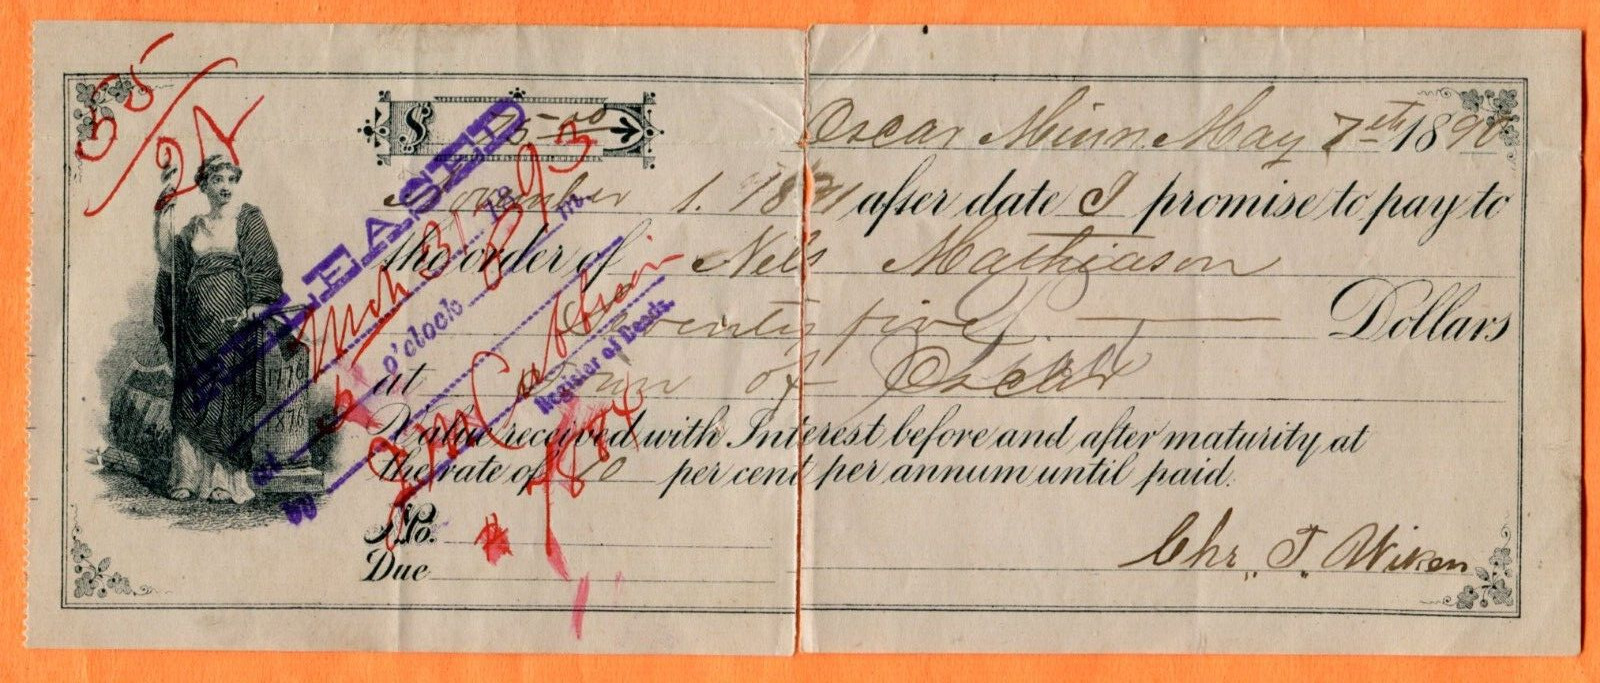 55/21
$ 75.00 Oscar Minn. May 7th 1890
November 1. 1891 after date I promise to pay to
the order of Nels Mathiason
Seventy five Dollars
at Town of Oscar
Value received with Interest before and after maturity at
the rate of 10 per cent per annum until paid.
No.
Due
Chr. T. Wiken
1776
1876
RELEASED
Mch 31 1893
at 5 o'clock P m.
by
Register of Deeds.